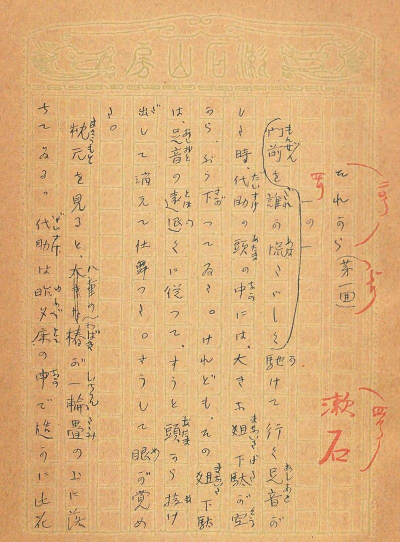 漱石山房
それから 第一回
漱石
一の一
門前を誰か慌たゞしく馳けて行く足音が
した時、代助の頭の中には、大きな俎下駄が空
から、ぶら下つてゐた。けれども、その俎下駄
は、足音の遠退くに従つて、すうと頭から抜け
出して消えて仕舞つた。さうして眼が覚め
た。
枕元を見ると、八重の椿が一輪畳の上に落
ちてゐる。代助は昨夕床の中で慥かに此花